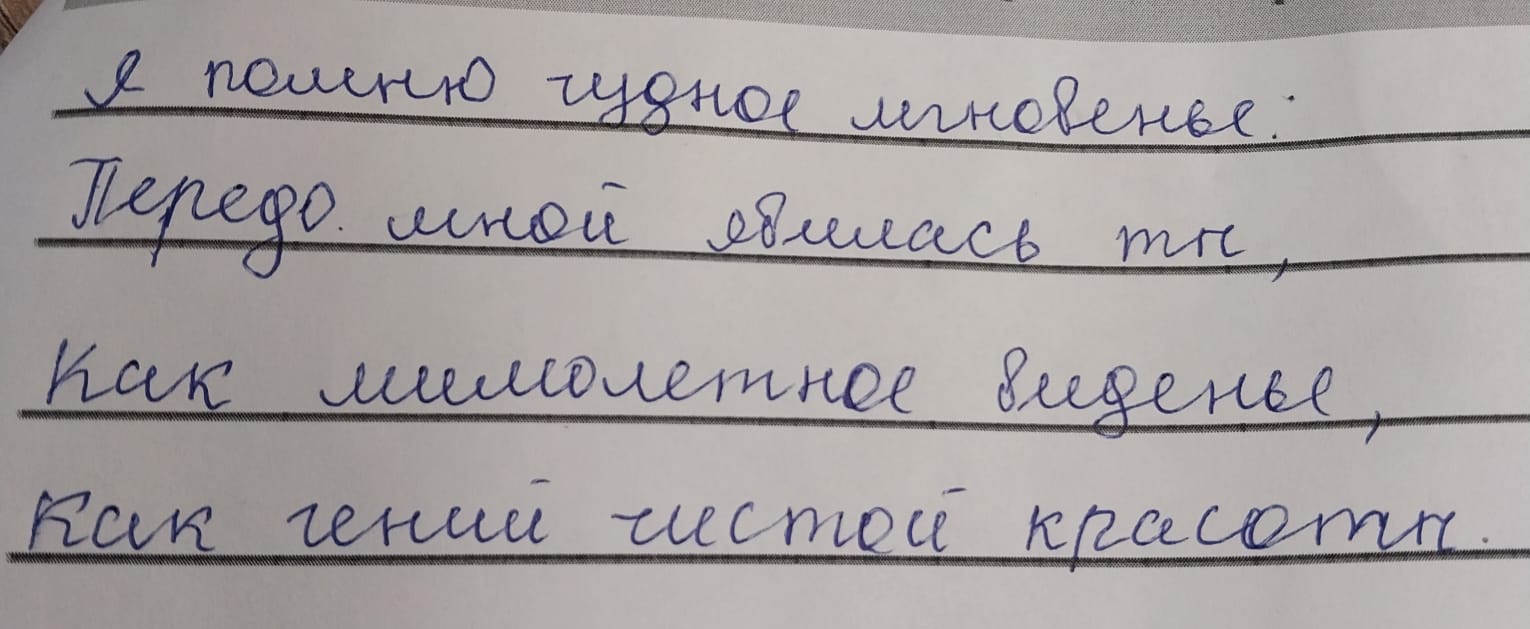 Я помню чудное мгновенье:
Передо мной явилась ты,
Как мимолетное виденье,
Как гений чистой красоты.